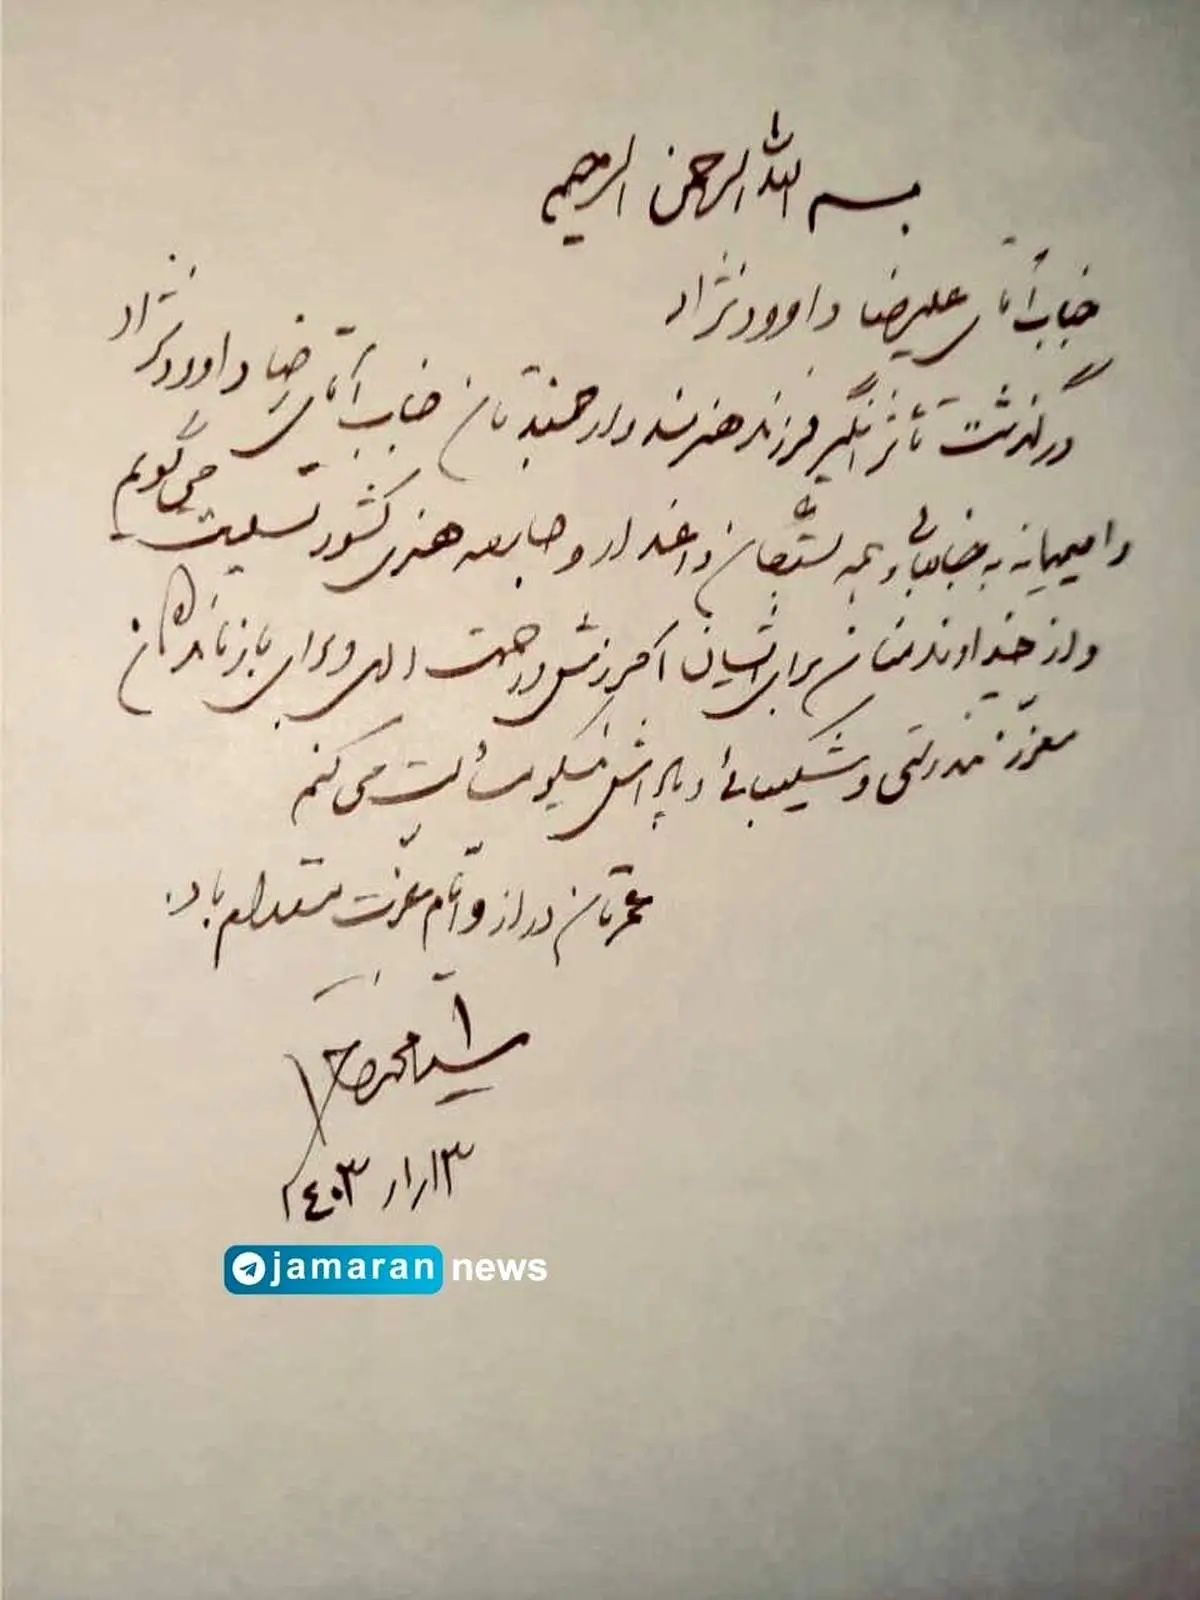 بسم الله الرحمن الرحیم
جناب آقای علیرضا داوودنژاد
درگذشت تأثرانگیز فرزند هنرمند و ارجمندتان جناب آقای رضا داوودنژاد
را صمیمانه به جنابعالی و همه بستگان داغدار و جامعه هنری کشور تسلیت می‌گویم
و از خداوند منان برای ایشان آمرزش و رحمت الهی و برای بازماندگان
معزز تندرستی و شکیبایی و پاداش نیکو مسألت می‌کنم
عمرتان دراز و ایّام عزّت مستدام باد.
سید محمد خاتمی
۱۴۰۳/۱/۱۳
jamaran news